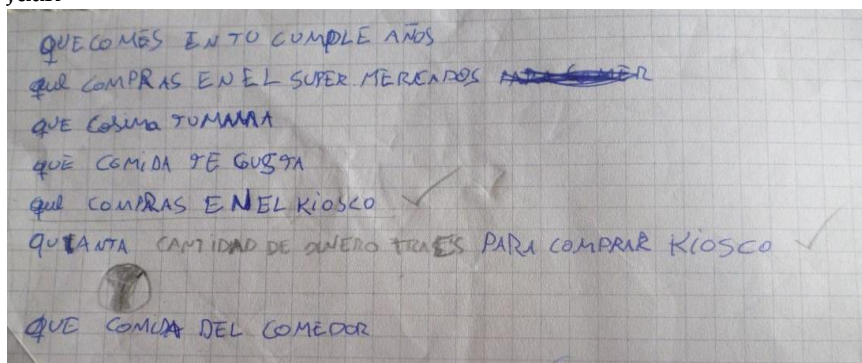 QUE COMES EN TU CUMPLE AÑOS
que COMPRAS EN EL SUPER MERCADOS
QUE COSINA TUMAMA
QUE COMIDA TE GUSTA
que COMPRAS ENEL KiOSCO
QUIANTA CANTIDAD DE DINERO TRAES PARA COMPRAR KiOSCO
QUE COMIDA DEL COMEDOR